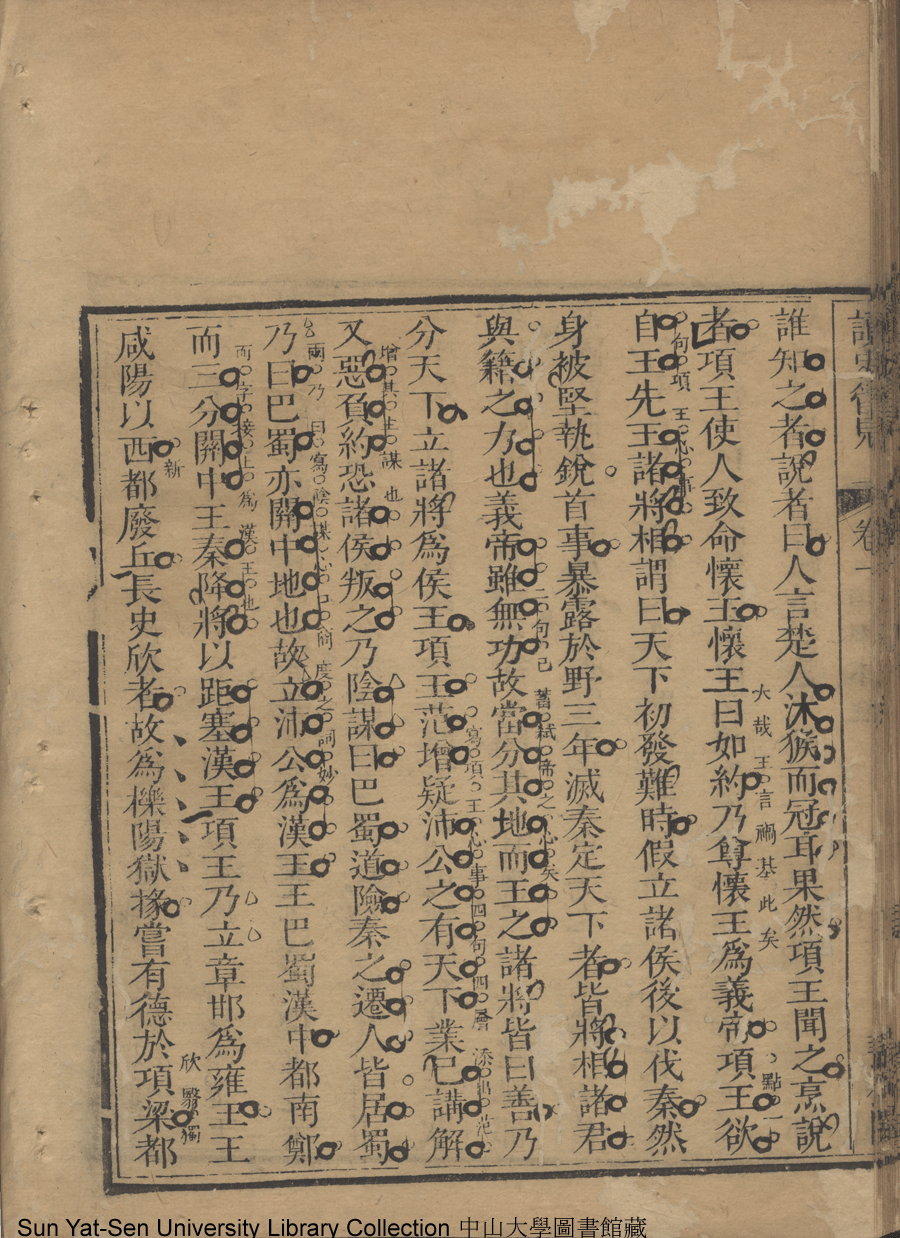 卷一
誰知之者說者曰人言楚人沐猴而冠耳果然項王聞之烹說
者項王使人致命懷王懷王曰如約乃尊懷王為義帝項王欲
大哉王言禍基此矣
點一
句項王心事
自王先王諸將相謂曰天下初發難時假立諸侯後以伐秦然
身被堅執銳首事暴露於野三年滅秦定天下者皆將相諸君
二句已蓄弒帝之心矣
與籍之力也義帝雖無功故當分其地而王之諸將皆曰善乃
分天下立諸將為侯王項王范增疑沛公之有天下業已講解
寫項王心事四句四層添出范
增其主謀也
又惡負約恐諸侯叛之乃陰謀曰巴蜀道險秦之遷人皆居蜀
乃曰巴蜀亦關中地也故立沛公為漢王王巴蜀漢中都南鄭
兩乃曰寫陰謀心口商度之詞妙
而三分關中王秦降將以距塞漢王項王乃立章邯為雍王王
而字接上為漢王也
咸陽以西都廢丘長史欣者故為櫟陽獄掾嘗有德於項梁都
欣翳獨
Sun Yat-Sen University Library Collection 中山大學圖書館藏